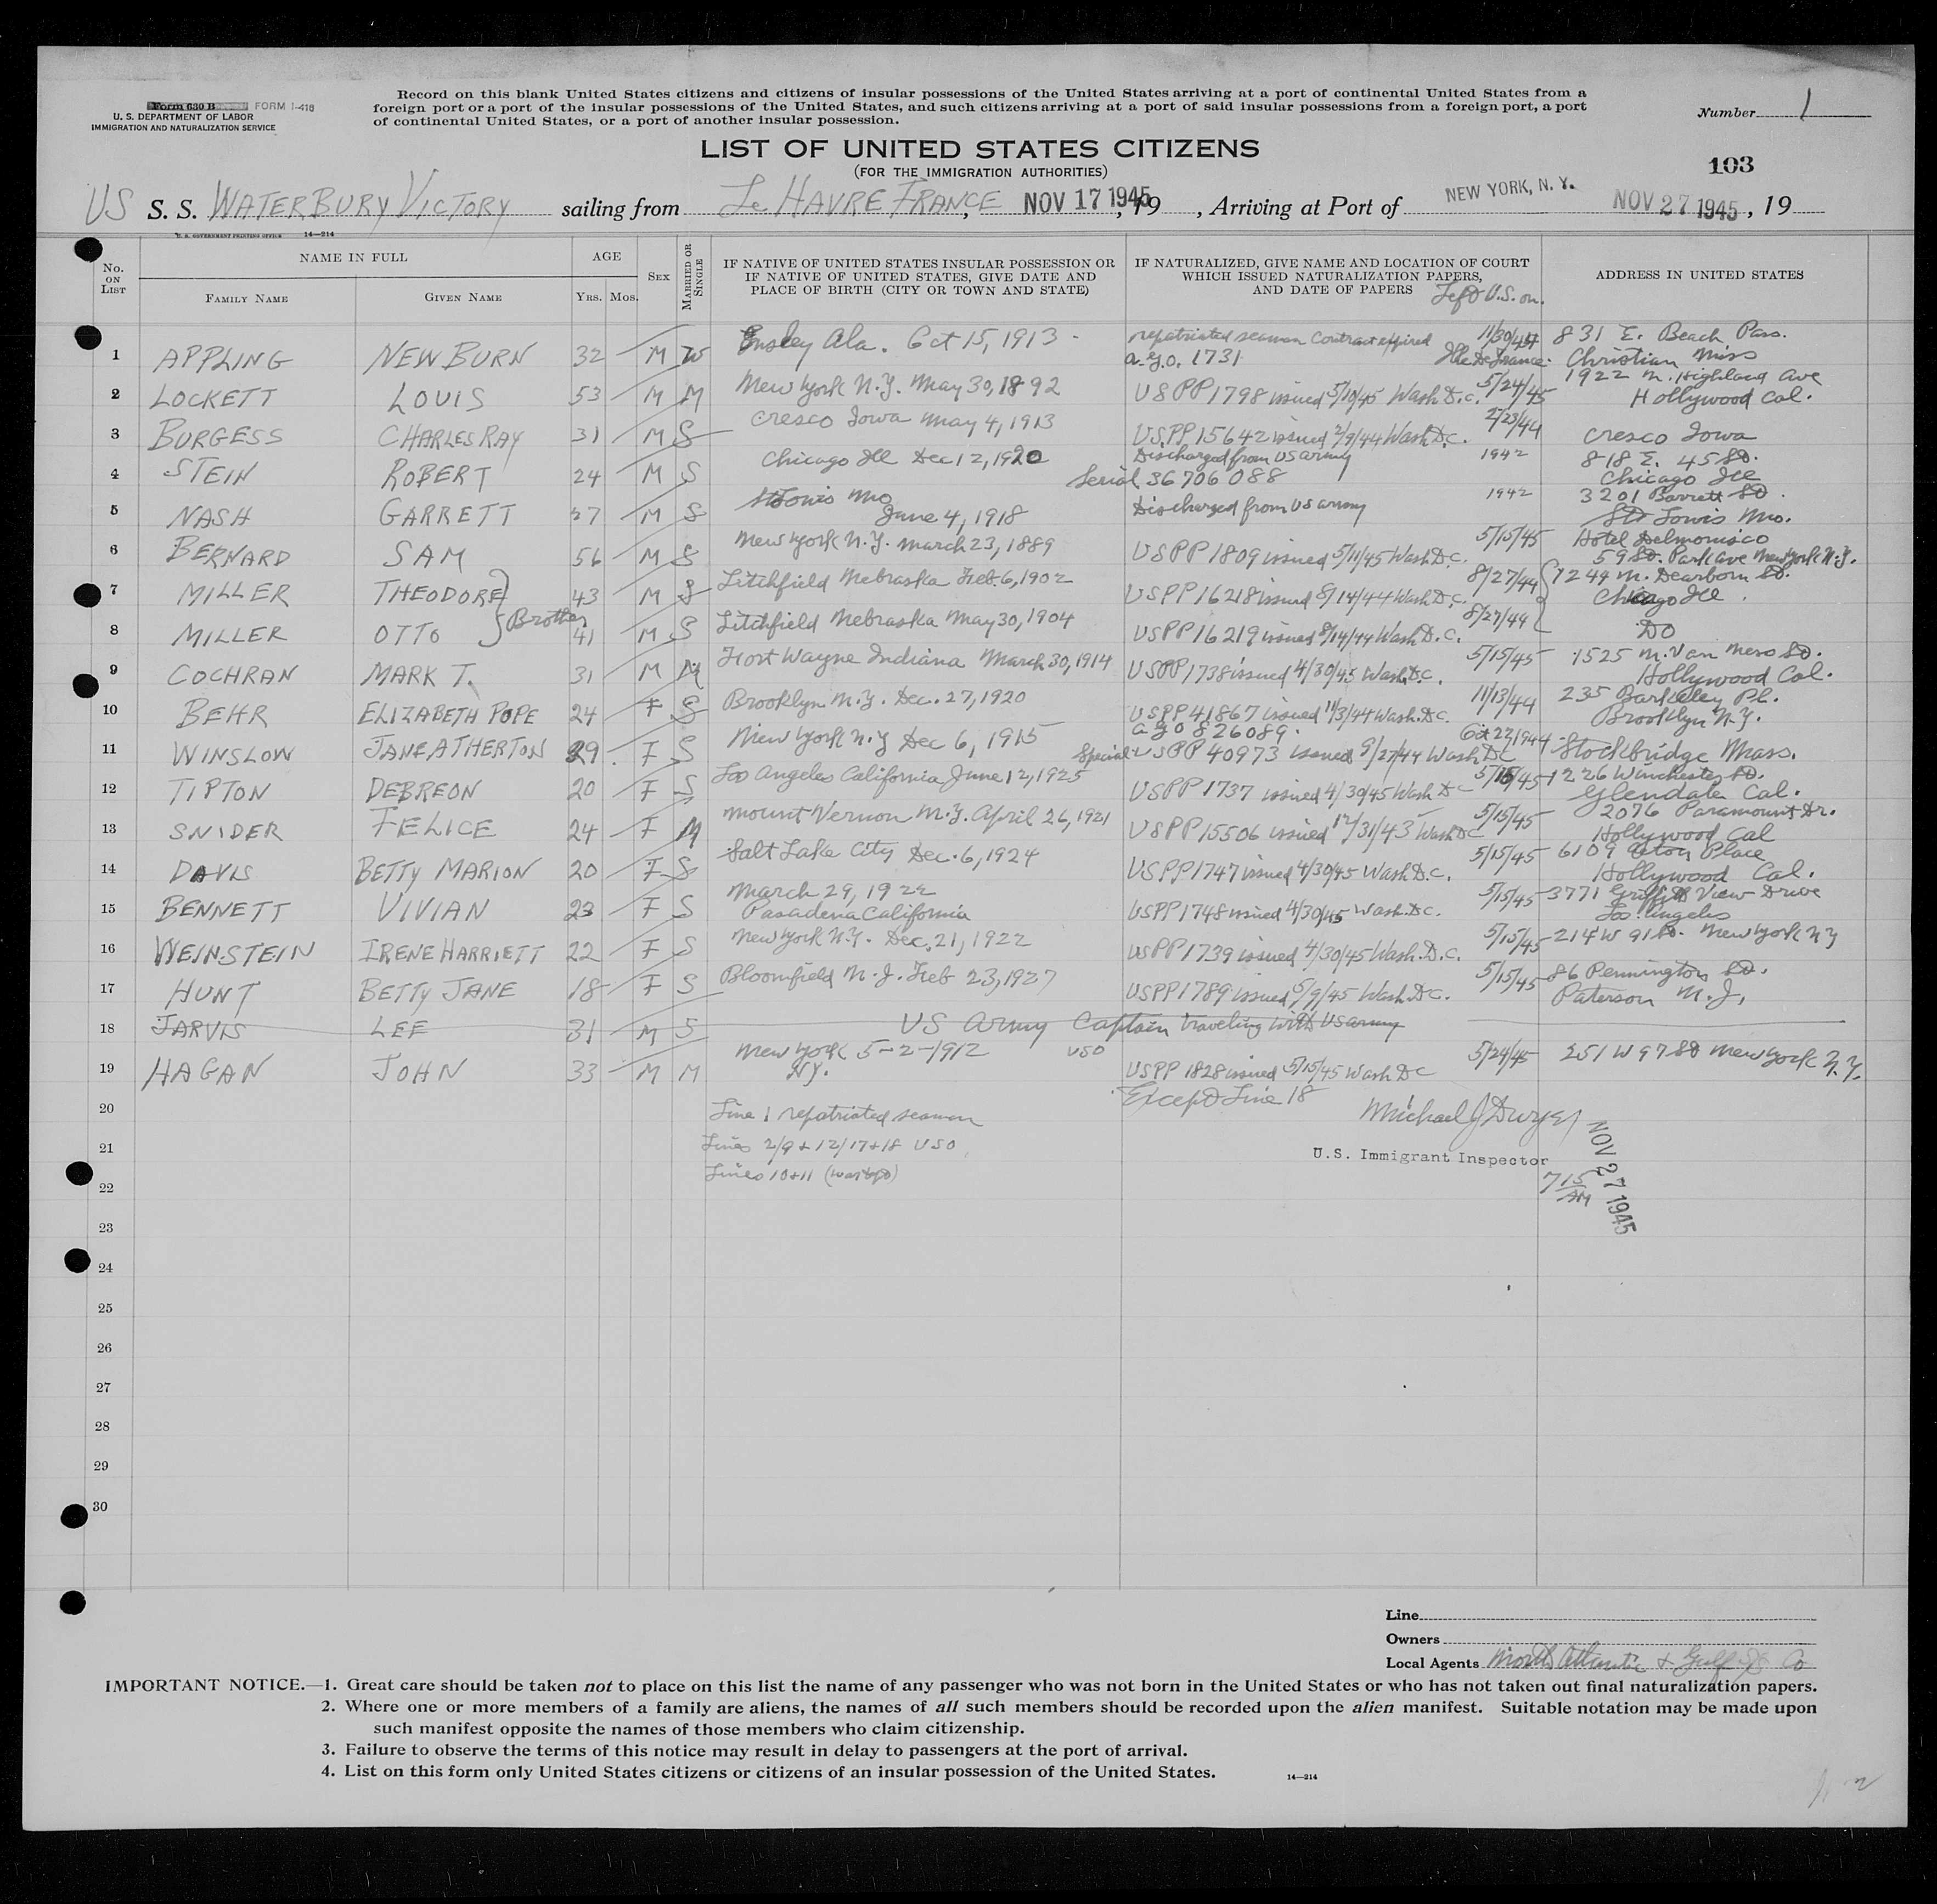 Form 630 B FORM I-418
U. S. DEPARTMENT OF LABOR
IMMIGRATION AND NATURALIZATION SERVICE
Record on this blank United States citizens and citizens of insular possessions of the United States arriving at a port of continental United States from a
foreign port or a port of the insular possessions of the United States, and such citizens arriving at a port of said insular possessions from a foreign port, a port
of continental United States, or a port of another insular possession.
Number 1
LIST OF UNITED STATES CITIZENS
(FOR THE IMMIGRATION AUTHORITIES)
103
US S. S. WATERBURY VICTORY sailing from Le HAVRE FRANCE, NOV 17 1945, 19 , Arriving at Port of NEW YORK, N. Y. NOV 27 1945, 19
U. S. GOVERNMENT PRINTING OFFICE 14—214
No. ON LIST
NAME IN FULL
FAMILY NAME GIVEN NAME
AGE
YRS. MOS.
SEX
MARRIED OR SINGLE
IF NATIVE OF UNITED STATES INSULAR POSSESSION OR
IF NATIVE OF UNITED STATES, GIVE DATE AND
PLACE OF BIRTH (CITY OR TOWN AND STATE)
IF NATURALIZED, GIVE NAME AND LOCATION OF COURT
WHICH ISSUED NATURALIZATION PAPERS,
AND DATE OF PAPERS Left U.S. on.
ADDRESS IN UNITED STATES
1 APPLING NEWBURN 32 M W Ensley Ala. Oct 15, 1913 repatriated seaman Contract expired 11/30/45 831 E. Beach Pass.
a.g.o. 1731 Ile De France Christian Miss
2 LOCKETT LOUIS 53 M M New York N.Y. May 30, 1892 USPP 1798 issued 5/10/45 Wash D.C. 5/24/45 1922 N. Highland Ave
Hollywood Cal.
3 BURGESS CHARLES RAY 31 M S Cresco Iowa May 4, 1913 USPP 15642 issued 2/9/44 Wash D.C. 2/23/44 Cresco Iowa
4 STEIN ROBERT 24 M S Chicago Ill Dec 12, 1920 Discharged from US army 1942 818 E. 45 St.
Serial 36706088 Chicago Ill
5 NASH GARRETT 27 M S St Louis Mo Discharged from US army 1942 3201 Barrett St.
June 4, 1918 St Louis Mo.
6 BERNARD SAM 56 M S New York N.Y. March 23, 1889 USPP 1809 issued 5/11/45 Wash D.C. 5/15/45 Hotel Delmonico
59 St. Park Ave New York N.Y.
7 MILLER THEODORE 43 M S Litchfield Nebraska Feb. 6, 1902 USPP 16218 issued 8/14/44 Wash D.C. 8/27/44 1244 N. Dearborn St.
Chicago Ill.
Brother
8 MILLER OTTO 41 M S Litchfield Nebraska May 30, 1904 USPP 16219 issued 8/14/44 Wash. D.C. 8/27/44 DO
9 COCHRAN MARK T. 31 M M Fort Wayne Indiana March 30, 1914 USPP 1738 issued 4/30/45 Wash. D.C. 5/15/45 1525 N. Van Ness St.
Hollywood Cal.
10 BEHR ELIZABETH POPE 24 F S Brooklyn N.Y. Dec. 27, 1920 USPP 41867 issued 11/3/44 Wash. D.C. 11/13/44 235 Barkeley Pl.
Brooklyn N.Y.
11 WINSLOW JANE ATHERTON 29 F S New York N.Y Dec 6, 1915 a g o 826089.
Special USPP 40973 issued 9/27/44 Wash DC Oct 27, 1944 Stockbridge Mass.
12 TIPTON DEBREON 20 F S Los Angeles California June 12, 1925 USPP 1737 issued 4/30/45 Wash DC 5/15/45 1226 Winchester St.
Glendale Cal.
13 SNIDER FELICE 24 F M Mount Vernon N.Y. April 26, 1921 USPP 15506 issued 12/31/43 Wash DC 5/15/45 2076 Paramount Dr.
Hollywood Cal
14 DAVIS BETTY MARION 20 F S Salt Lake City Dec. 6, 1924 USPP 1747 issued 4/30/45 Wash D.C. 5/15/45 6109 Place
Hollywood Cal.
15 BENNETT VIVIAN 23 F S March 29, 1922 USPP 1748 issued 4/30/45 Wash. D.C. 5/15/45 3771 Griffith View Drive
Pasadena California Los Angeles
16 WEINSTEIN IRENE HARRIETT 22 F S New York N.Y. Dec. 21, 1922 USPP 1739 issued 4/30/45 Wash. D.C. 5/15/45 214 W 91 St. New York NY
17 HUNT BETTY JANE 18 F S Bloomfield N.J. Feb 23, 1927 USPP 1789 issued 5/9/45 Wash. D.C. 5/15/45 86 Pennington St.
Paterson N.J.
18 JARVIS LEE 31 M S US Army Captain traveling with US army
19 HAGAN JOHN 33 M M New York 5-2-1912 USO
N.Y. USPP 1828 issued 5/15/45 Wash DC 5/24/45 251 W 97 St New York N.Y.
20 Line 1 repatriated seaman Except Line 18 Michael J Dwyer
21 Lines 2/9 + 12/17 + 18 USO
U.S. Immigrant Inspector
22 Lines 10+11
NOV 27 1945
7 15 AM
23
24
25
26
27
28
29
30
Line
Owners
Local Agents North Atlantic & Gulf SS Co
IMPORTANT NOTICE.—1. Great care should be taken not to place on this list the name of any passenger who was not born in the United States or who has not taken out final naturalization papers.
2. Where one or more members of a family are aliens, the names of all such members should be recorded upon the alien manifest. Suitable notation may be made upon
such manifest opposite the names of those members who claim citizenship.
3. Failure to observe the terms of this notice may result in delay to passengers at the port of arrival.
4. List on this form only United States citizens or citizens of an insular possession of the United States.
14—214